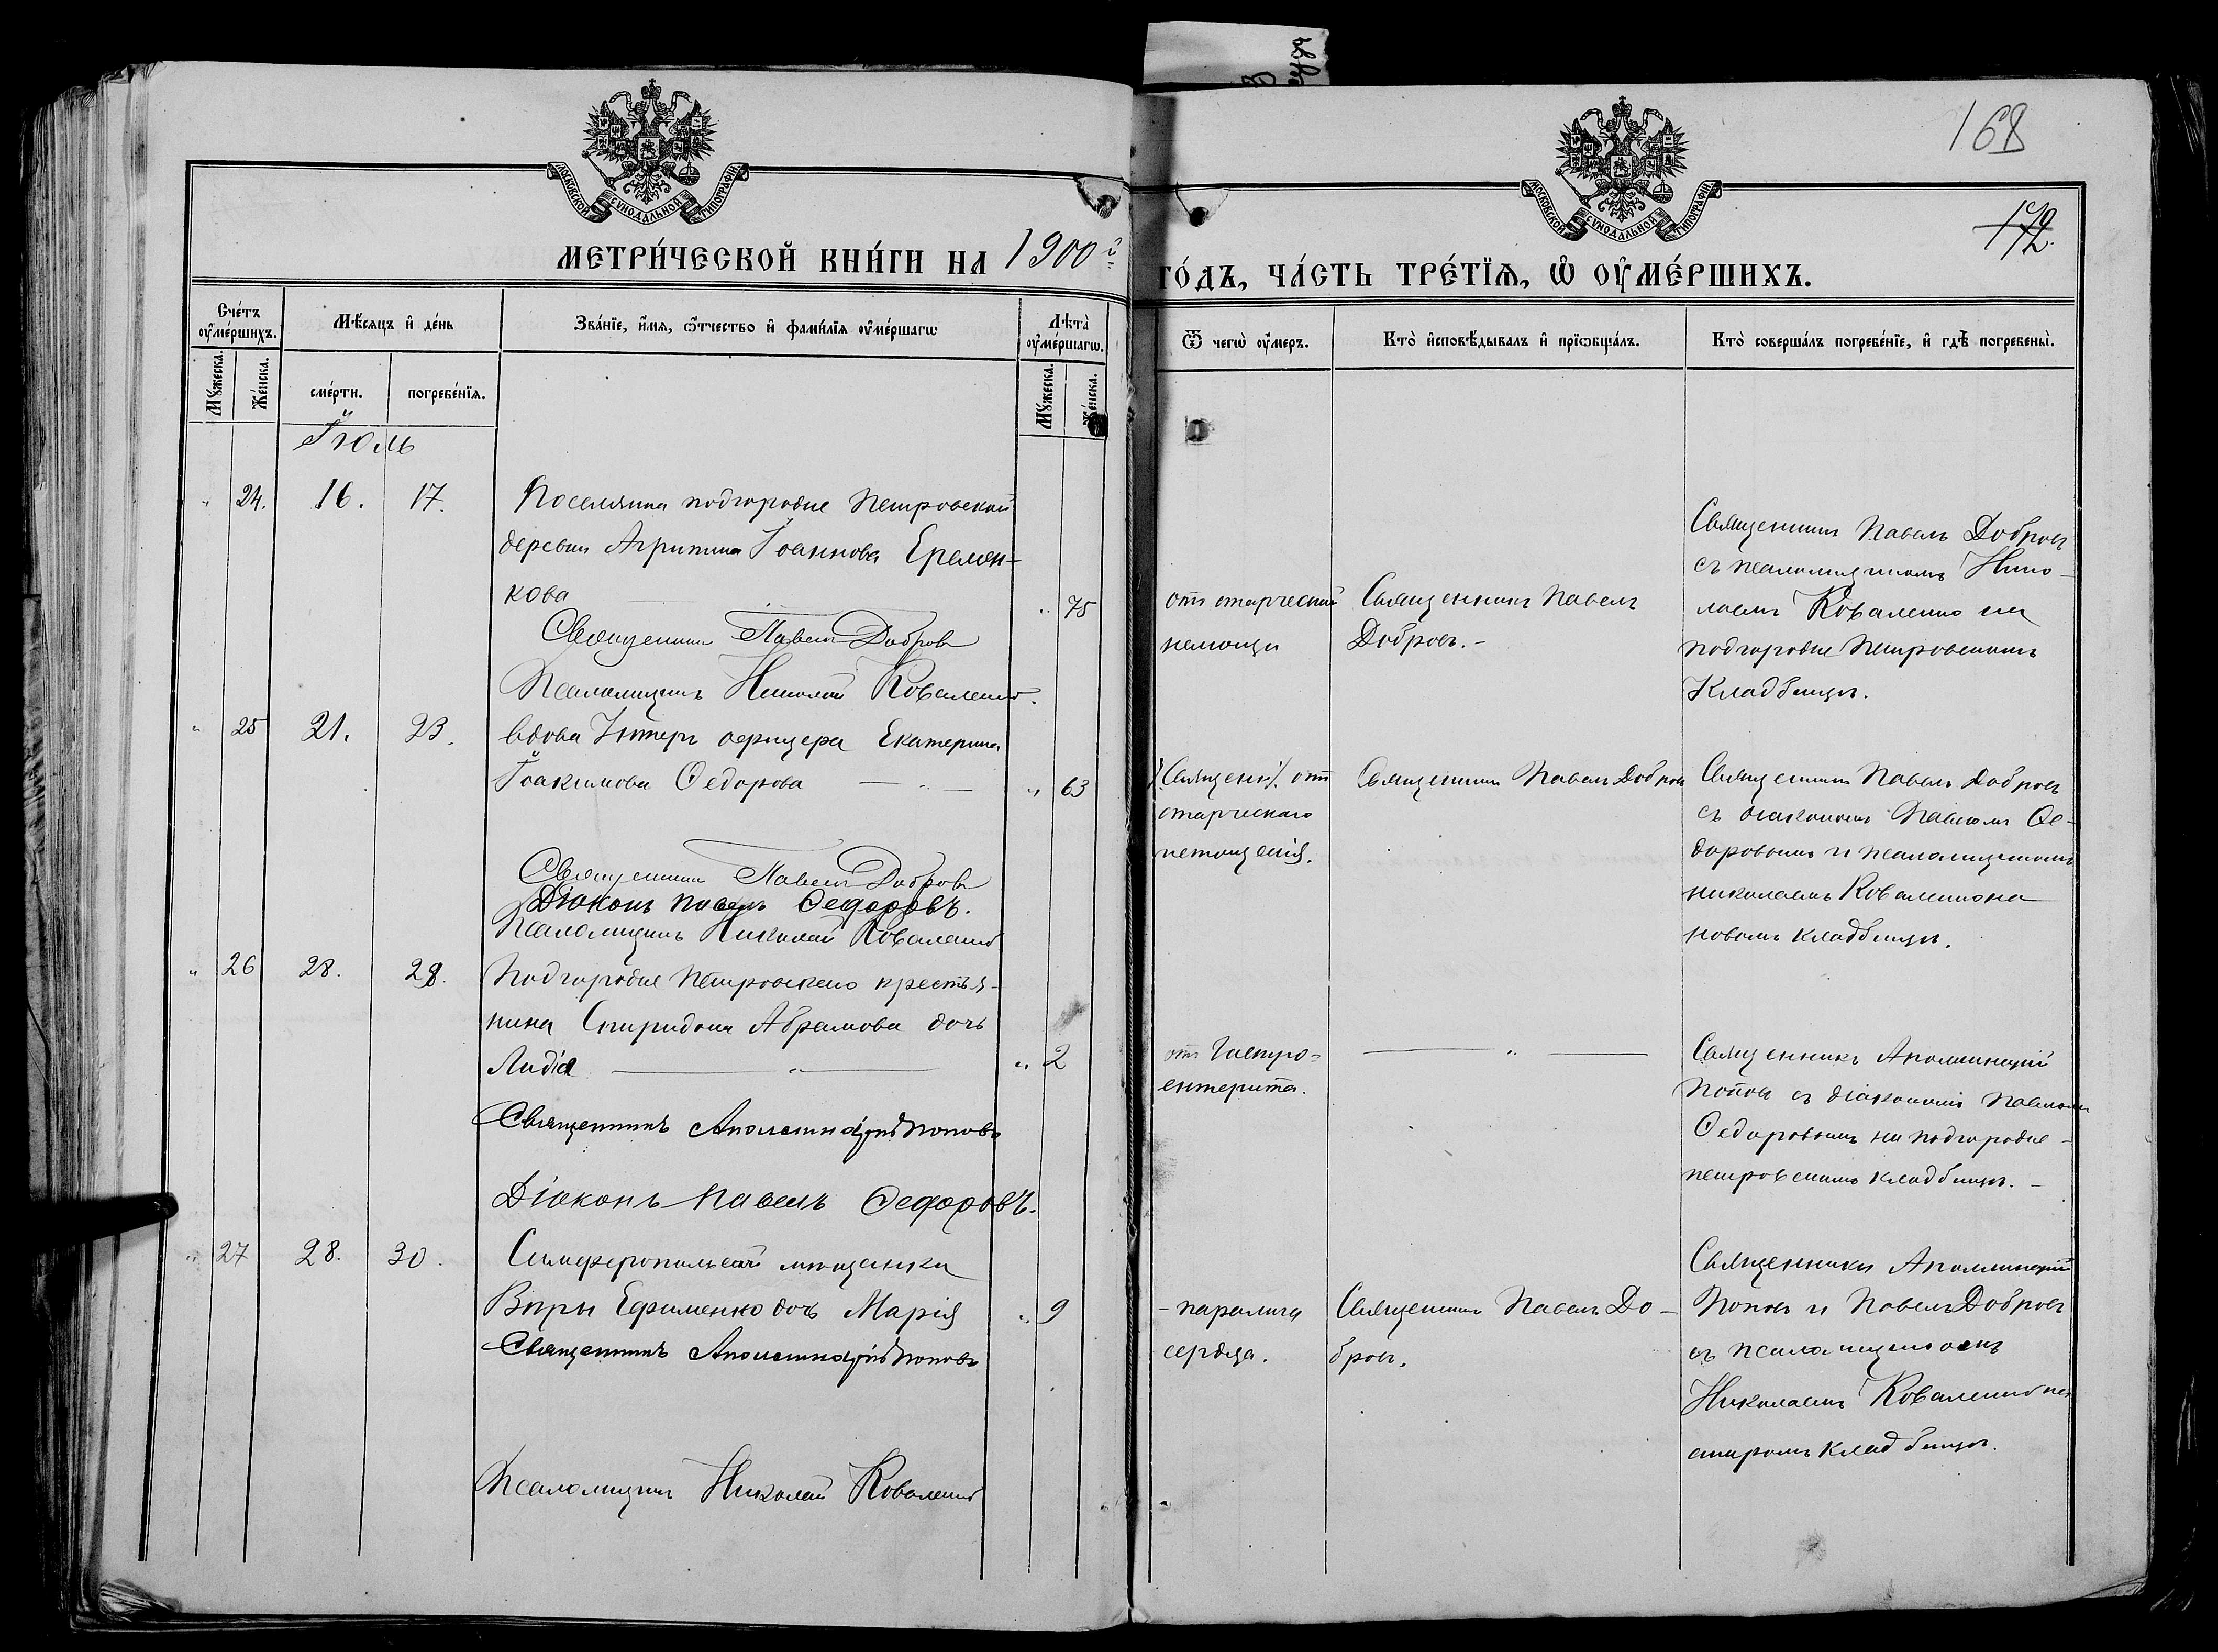 168
172.
МОСКОВСКОЙ СѴНОДАЛЬНОЙ ТИПОГРАФІИ
МОСКОВСКОЙ СѴНОДАЛЬНОЙ ТИПОГРАФІИ
МЕТРИ́ЧЕСКОЙ КНИ́ГИ НА 1900 г
ГО́ДЪ, ЧА́СТЬ ТРЕ́ТІѦ, Ѡ ОУМЕ́РШИХЪ.
Сче́тъ оуме́ршихъ.
Му́жеска.
Же́нска.
Мѣ́сяцъ и де́нь
сме́рти.
погребе́нїѧ.
Зва́нїе, и́мѧ, ѻ́тчество и фами́лїѧ оуме́ршагѡ
Лѣта̀ оуме́ршагѡ.
Му́жеска.
Же́нска.
Ѿ чегѡ̀ оу́меръ.
Кто̀ исповѣ́дывалъ и прїѡбща́лъ.
Кто̀ соверша́лъ погребе́нїе, и гдѣ̀ погребены̀.
Іюль
„ 24. 16. 17.
Поселянка подгородне Петровской
деревни Агрипина Іоаннова Еремен-
кова „ 75
Священникъ Павелъ Добровъ
Псаломщикъ Николай Коваленко.
отъ старческой
немощи
Священникъ Павелъ
Добровъ. -
Священникъ Павелъ Добровъ
съ псаломщикомъ Нико-
лаемъ Коваленко на
подгородне Петровскомъ
Кладбищѣ.
„ 25 21. 23.
вдова Унтеръ офицера Екатерина
Іоакимова Ѳедорова — „ — „ 63
Священникъ Павелъ Добровъ
Діаконъ Павелъ Ѳедоровъ.
Псаломщикъ Николай Коваленко
/Священ./. отъ
старческаго
истощенія.
Священникъ Павелъ Добровъ
Священникъ Павелъ Добровъ
съ діакономъ Павломъ Ѳе-
доровымъ и псаломщикомъ
Николаемъ Коваленко на
новомъ кладбищѣ.
„ 26 28. 28.
Подгородне Петровскаго крестья-
нина Спиридона Абрамова дочь
Лидія — „ — „ 2
Священникъ Аполлинарій Поповъ
Діаконъ Павелъ Ѳедоровъ.
отъ Гастро-
ентерита.
— „ —
Священникъ Аполлинарій
Поповъ съ діакономъ Павломъ
Ѳедоровымъ на подгородне-
петровскомъ кладбищѣ. -
„ 27 28. 30.
Симферопольской мѣщанки
Вѣры Ефименко дочь Марія „ 9
Священникъ Аполлинарій Поповъ
Псаломщикъ Николай Коваленко
- паралича
сердца.
Священникъ Павелъ До-
бровъ.
Священники Аполлинарій
Поповъ и Павелъ Добровъ
съ псаломщикомъ
Николаемъ Коваленко на
старомъ кладбищѣ.